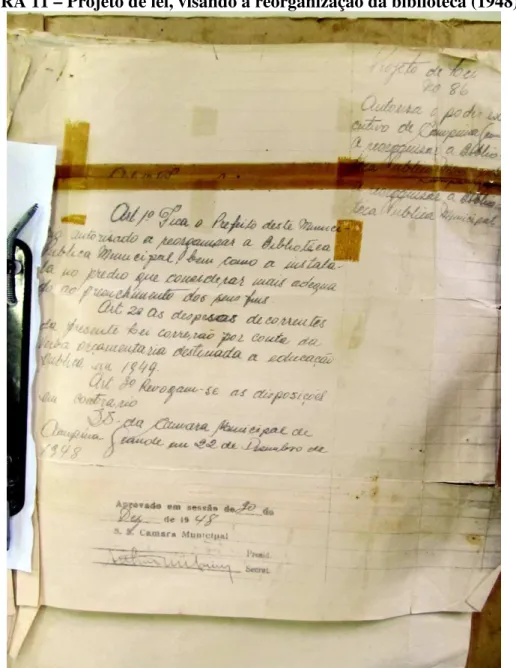 RA 11 – Projeto de lei, visando a reorganização da biblioteca (1948)
Projeto de Lei
No 86
Autorisa o poder exe
cutivo de Campina
a reorganisar a Biblio
teca Publica
a reorganisar a Biblio
teca Publica Municipal
Art 1º Fica o Prefeito deste Munici-
pio autorisado a reorganisar a Biblioteca
Publica Municipal, bem como a instala-
la no predio que considerar mais adequa
do ao preenchimento dos seus fins
Art 2º As despesas decorrentes
da presente lei correrão por conta da
verba orçamentaria destinada a educação
publica em 1949.
Art 3º Revogam-se as disposições
em contrario
SS. da Camara Municipal de
Campina Grande em 22 de Dezembro de
1948
Aprovado em sessão de 30 de
Dez de 1948
S. S. Camara Municipal
Presid.
Secret.